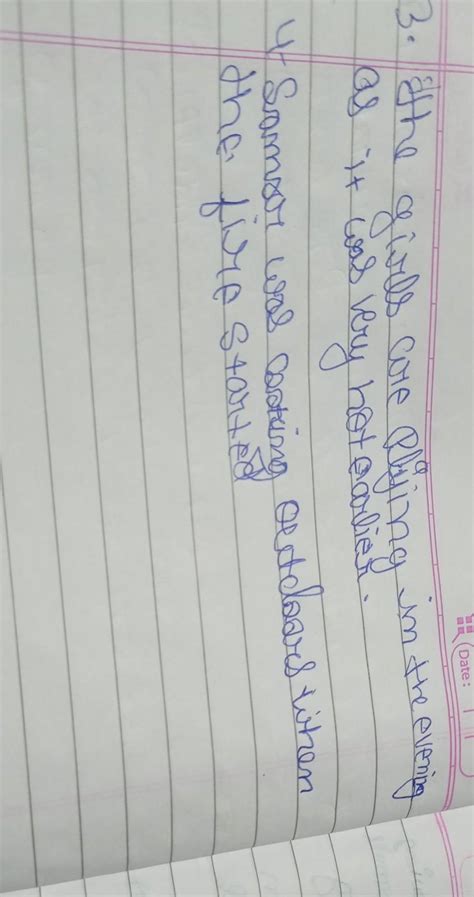 Date:
3. The girls are plying in the evening
as it was very hot earlier.
4. was cooking outdoors when
the fire started